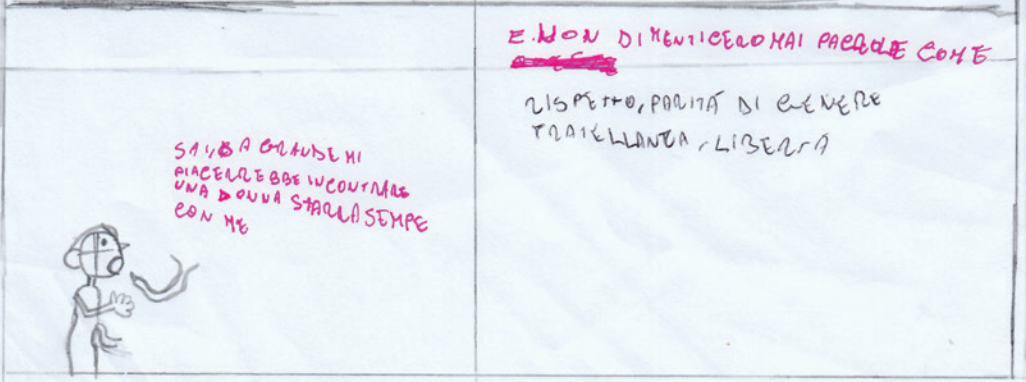 SAI, DA GRANDE MI
PIACERREBBE INCONTRARE
UNA DONNA STARRÀ SEMPE
CON ME
E. NON DIMENTICERO MAI PAEROLE COME
RISPETTO, PARITÀ DI GENERE
FRATELLANZA, LIBERTÀ